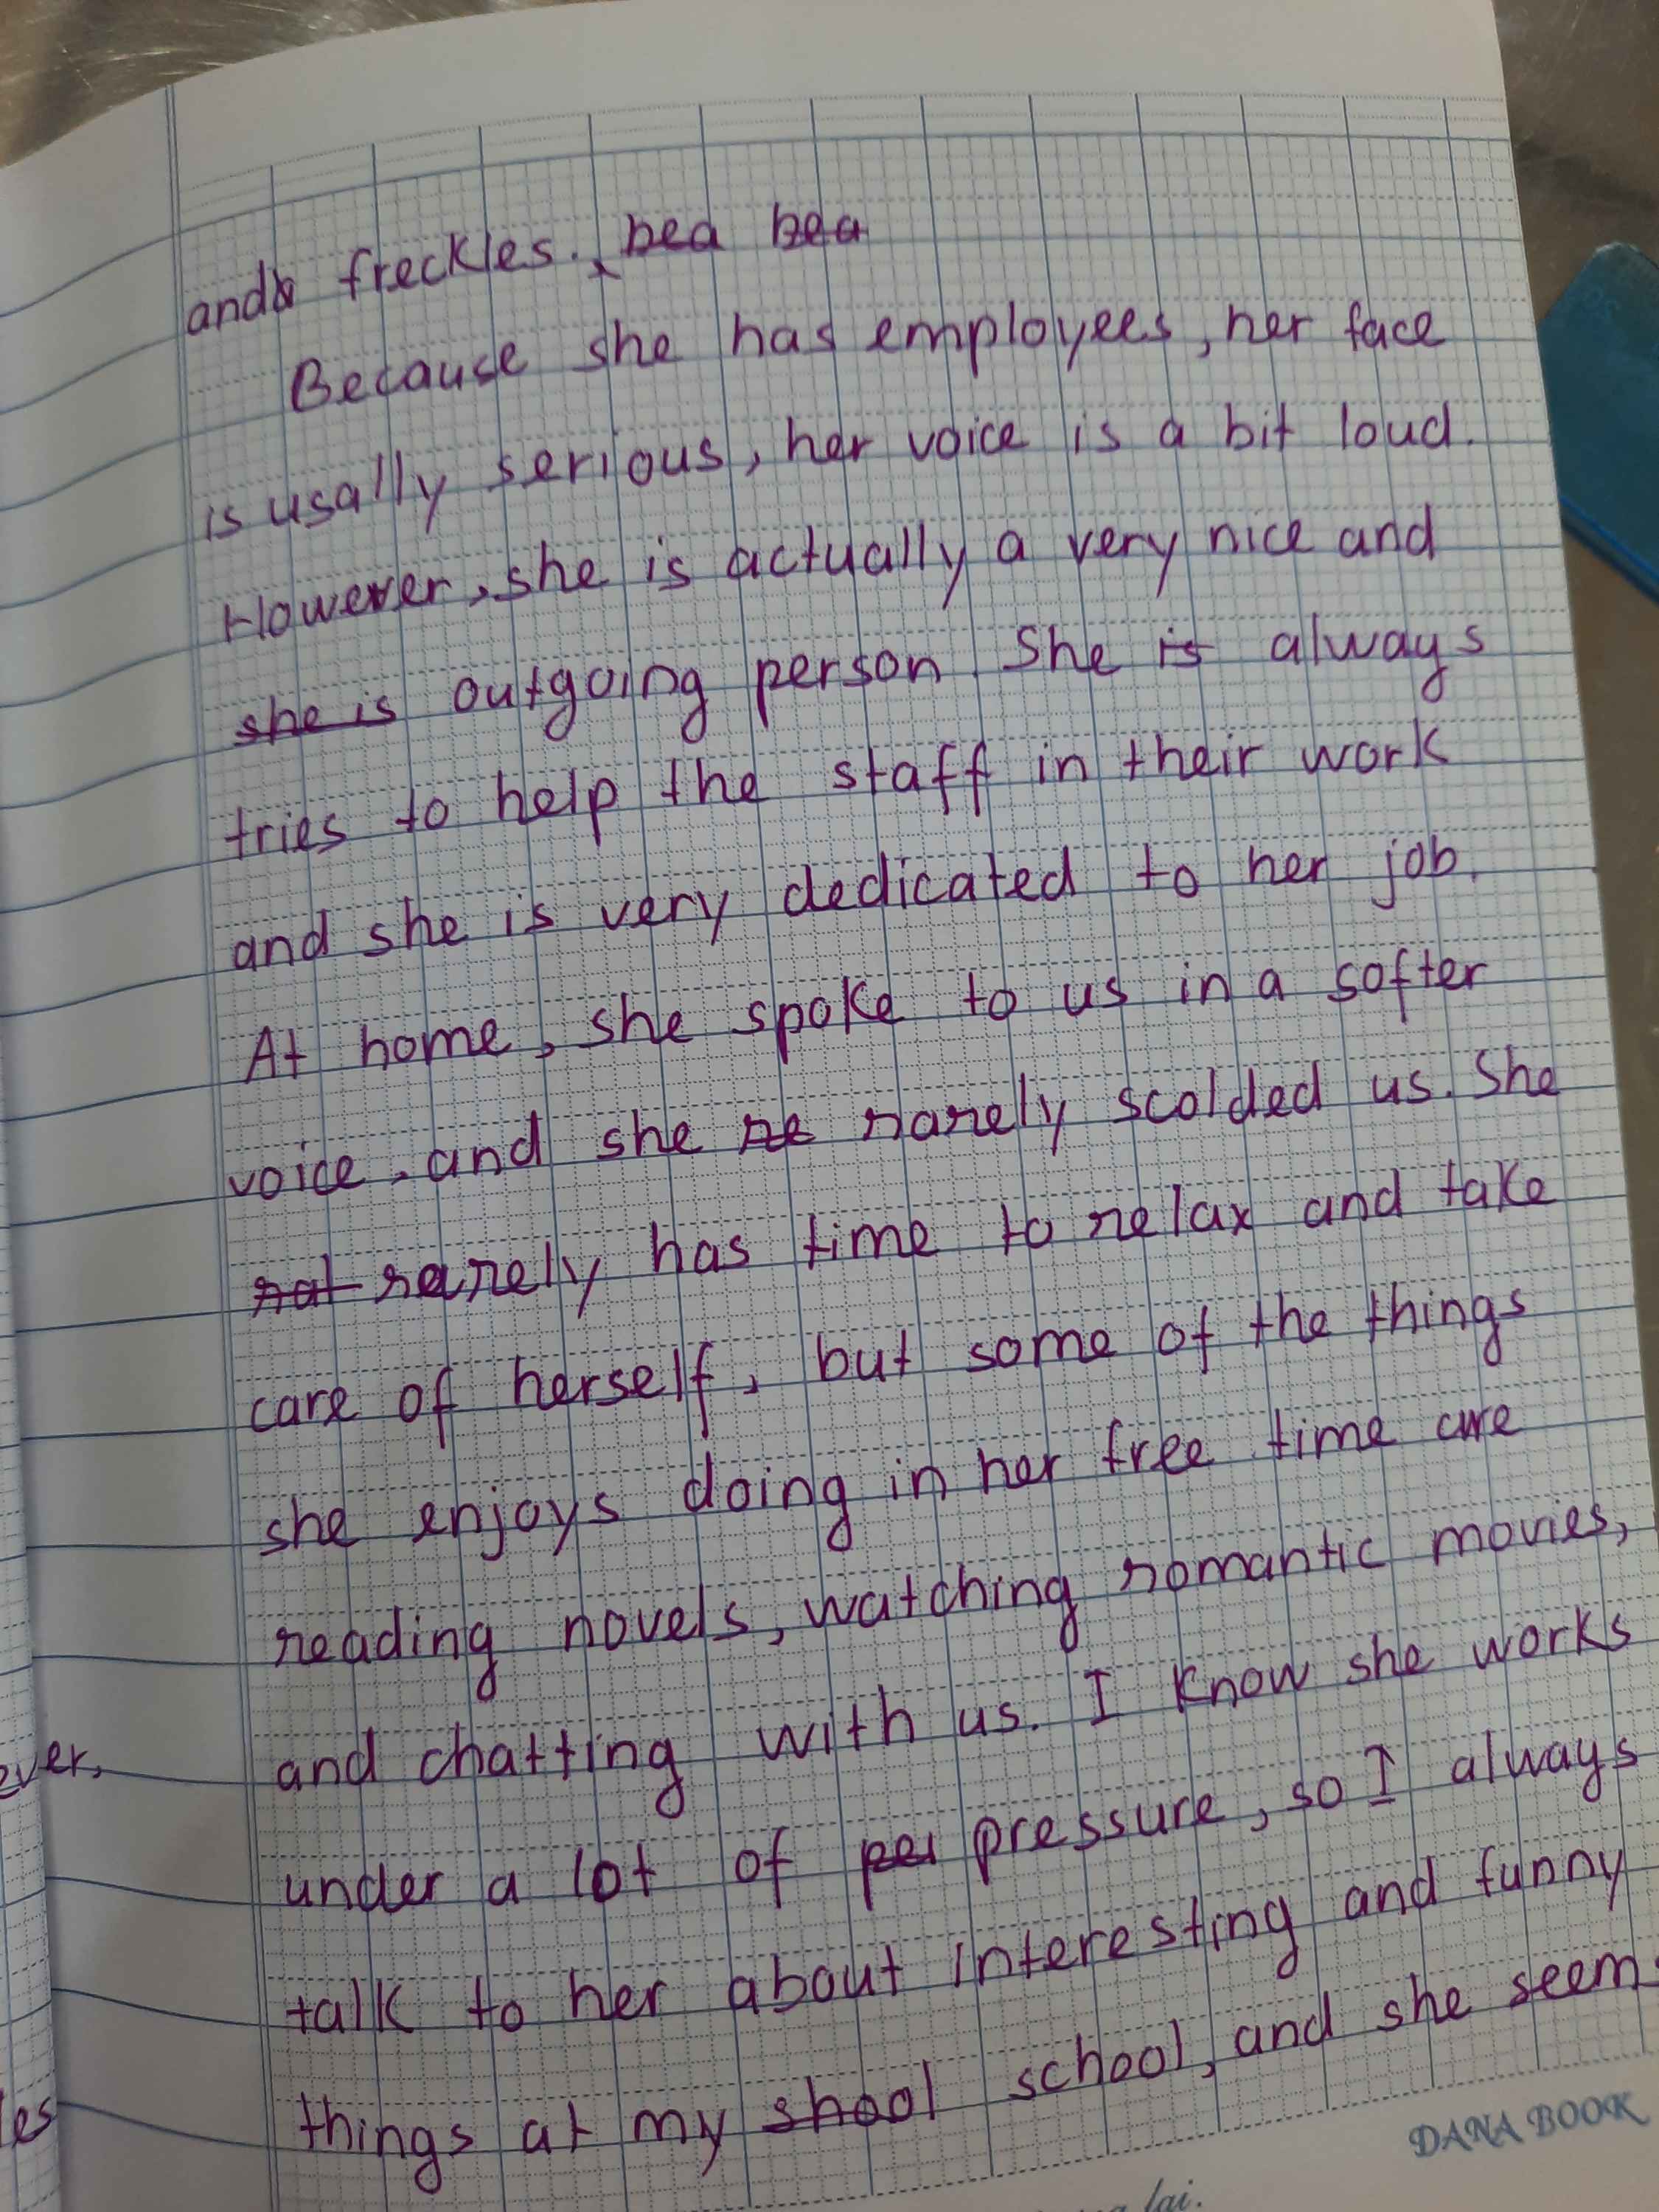 and freckles. bea bea
Because she has employees, her face
is usally serious, her voice is a bit loud.
However, she is actually a very nice and
she is outgoing person. She is always
tries to help the staff in their work
and she is very dedicated to her job.
At home, she spoke to us in a softer
voice, and she re rarely scolded us. She
rat rarely has time to relax and take
care of herself, but some of the things
she enjoys doing in her free time are
reading novels, watching romantic movies,
and chatting with us. I know she works
ever,
under a lot of per pressure, so I always
talk to her about interesting and funny
things at my shool school, and she seem
es
DANA BOOK
lai.